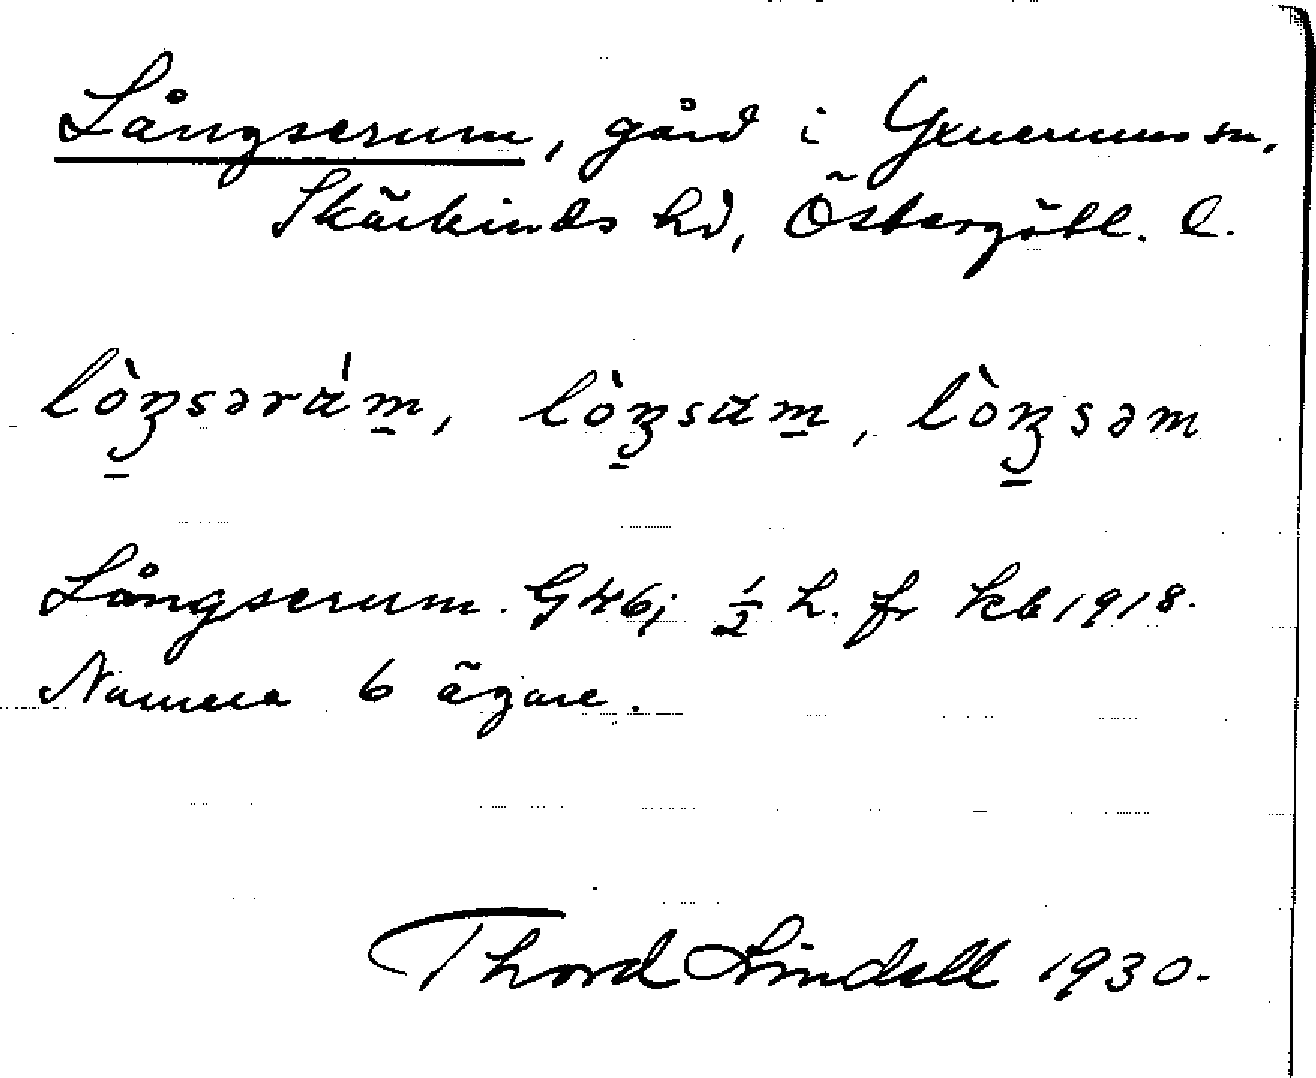 Långserum, gård i Yxnerums sn,
Skärkinds hd, Östergötl. l.
lòŋsərám, lòŋsam, lòŋsəm
Långserum. G 46; 1/2 h. fr kb 1918.
Numera 6 ägare.
Thord Lindell 1930.